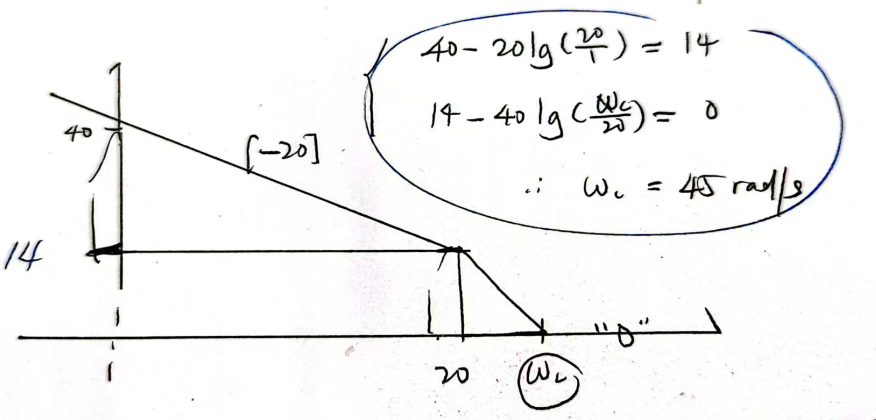 40-20lg(20/1) = 14
14-40lg(ωc/20) = 0
∴ ωc = 45 rad/s
40
[-20]
14
"0"
1
20
ωc